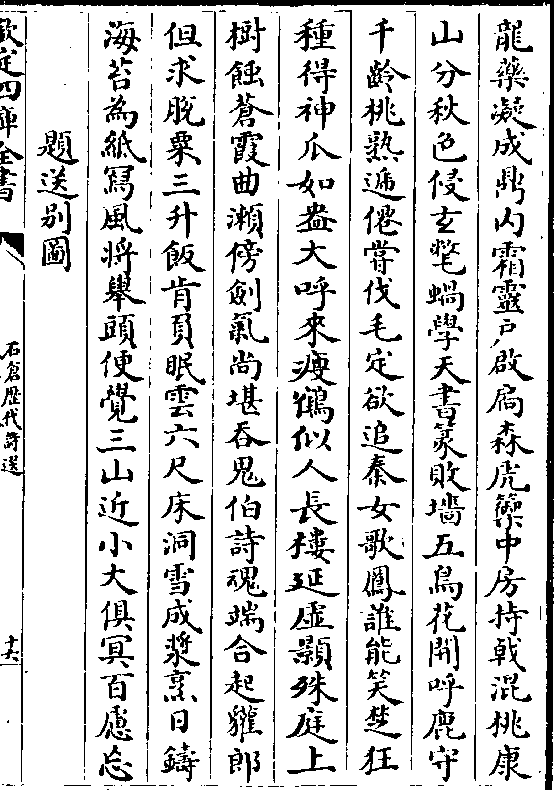 龍藥凝成鼎内霜靈戶啟扃森虎籞中房持戟混桃康
山分秋色侵玄氅蝸學天書篆敗墻五烏花開呼鹿守
千齡桃熟遞僊嘗伐毛定欲追秦女歌鳳誰能笑楚狂
種得神爪如盎大呼來瘦鶴似人長捿延虚顥殊庭上
樹蝕蒼霞曲瀨傍劍氣尚堪吞鬼伯詩魂端合起貛郎
但求脱粟三升飯肯負眠雲六尺床洞雪成漿烹日鑄
海苔為紙寫風將舉頭便覺三山近小大俱冥百慮忘
題送别圖
欽定四庫全書
石倉歷代詩選
十六